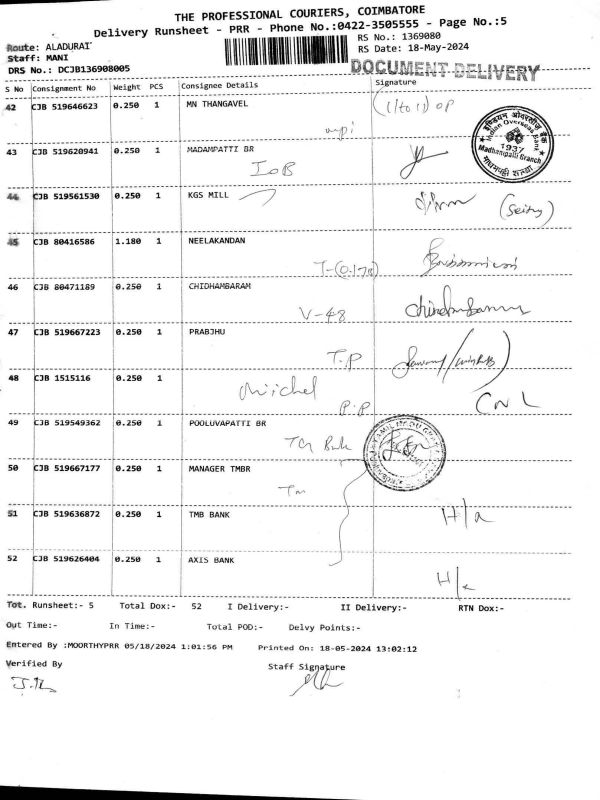 THE PROFESSIONAL COURIERS, COIMBATORE
Delivery Runsheet - PRR - Phone No.:0422-3505555 - Page No.:5
Route: ALADURAI
RS No.: 1369080
Staff: MANI
RS Date: 18-May-2024
DRS No.: DCJB136908005
DOCUMENT DELIVERY
S No Consignment No Weight PCS Consignee Details Signature
42 CJB 519646623 0.250 1 MN THANGAVEL
इण्डियन ओवरसीज़ बैंक
Indian Overseas Bank
1937
Madhampatti Branch
43 CJB 519620941 0.250 1 MADAMPATTI BR
IOB
44 CJB 519561530 0.250 1 KGS MILL
45 CJB 80416586 1.180 1 NEELAKANDAN
46 CJB 80471189 0.250 1 CHIDHAMBARAM
V-48
47 CJB 519667223 0.250 1 PRABJHU
T.P
48 CJB 1515116 0.250 1
P.P
49 CJB 519549362 0.250 1 POOLUVAPATTI BR
50 CJB 519667177 0.250 1 MANAGER TMBR
51 CJB 519636872 0.250 1 TMB BANK
H/a
52 CJB 519626404 0.250 1 AXIS BANK
Tot. Runsheet:- 5 Total Dox:- 52 I Delivery:- II Delivery:- RTN Dox:-
Out Time:- In Time:- Total POD:- Delvy Points:-
Entered By :MOORTHYPRR 05/18/2024 1:01:56 PM Printed On: 18-05-2024 13:02:12
Verified By Staff Signature